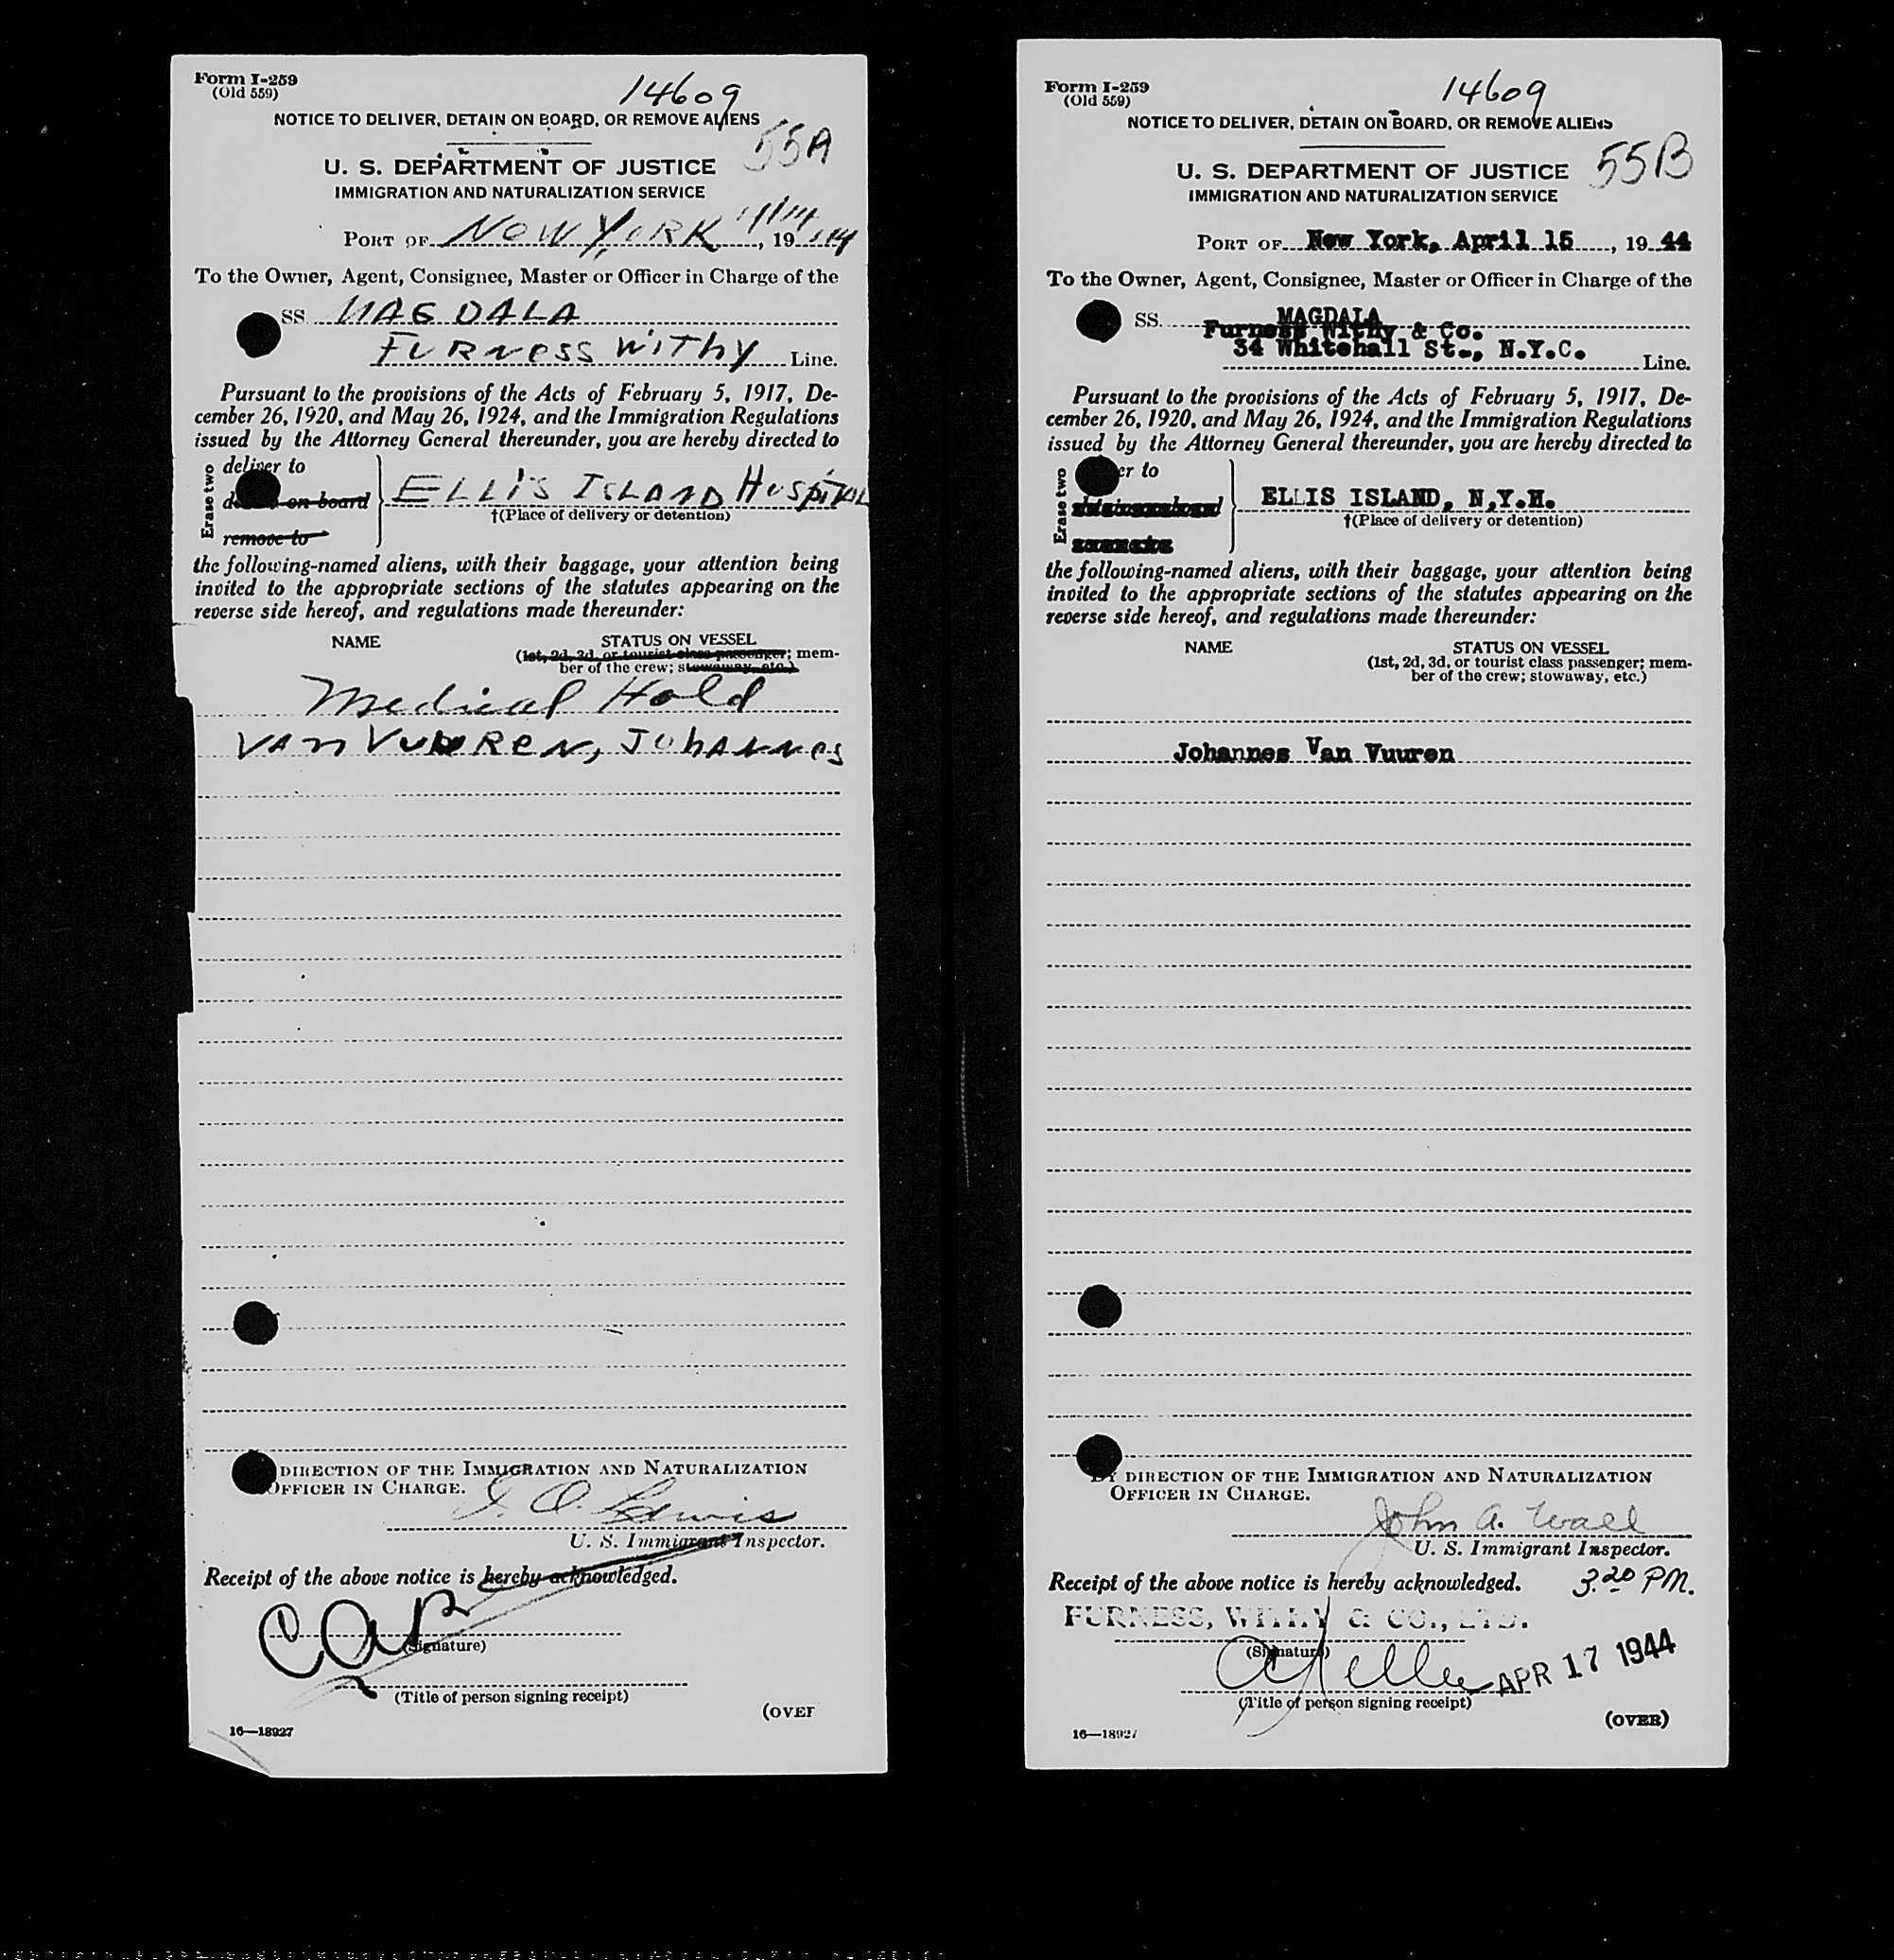 Form I-259
(Old 559)
14609
NOTICE TO DELIVER, DETAIN ON BOARD, OR REMOVE ALIENS
55A
U. S. DEPARTMENT OF JUSTICE
IMMIGRATION AND NATURALIZATION SERVICE
PORT OF NEW YORK, 19
To the Owner, Agent, Consignee, Master or Officer in Charge of the
SS. MAGDALA
FURNESS WITHY Line.
Pursuant to the provisions of the Acts of February 5, 1917, De-
cember 26, 1920, and May 26, 1924, and the Immigration Regulations
issued by the Attorney General thereunder, you are hereby directed to
Erase two
deliver to
on board
remove to
ELLIS ISLAND HOSPITAL
†(Place of delivery or detention)
the following-named aliens, with their baggage, your attention being
invited to the appropriate sections of the statutes appearing on the
reverse side hereof, and regulations made thereunder:
NAME
STATUS ON VESSEL
(1st, 2d, 3d, or tourist class passenger; mem-
ber of the crew; stowaway, etc.)
Medical Hold
VAN VUUREN, JOHANNES
DIRECTION OF THE IMMIGRATION AND NATURALIZATION
OFFICER IN CHARGE.
Lewis
U. S. Immigrant Inspector.
Receipt of the above notice is hereby acknowledged.
(Signature)
(Title of person signing receipt)
(OVER
16—18927
Form I-259
(Old 559)
14609
NOTICE TO DELIVER, DETAIN ON BOARD, OR REMOVE ALIENS
55B
U. S. DEPARTMENT OF JUSTICE
IMMIGRATION AND NATURALIZATION SERVICE
PORT OF New York, April 15, 19 44
To the Owner, Agent, Consignee, Master or Officer in Charge of the
SS. MAGDALA
Furness Withy & Co.
34 Whitehall St., N.Y.C. Line.
Pursuant to the provisions of the Acts of February 5, 1917, De-
cember 26, 1920, and May 26, 1924, and the Immigration Regulations
issued by the Attorney General thereunder, you are hereby directed to
Erase two
er to
ELLIS ISLAND, N.Y.H.
†(Place of delivery or detention)
the following-named aliens, with their baggage, your attention being
invited to the appropriate sections of the statutes appearing on the
reverse side hereof, and regulations made thereunder:
NAME
STATUS ON VESSEL
(1st, 2d, 3d, or tourist class passenger; mem-
ber of the crew; stowaway, etc.)
Johannes Van Vuuren
BY DIRECTION OF THE IMMIGRATION AND NATURALIZATION
OFFICER IN CHARGE.
John A. Wall
U. S. Immigrant Inspector.
Receipt of the above notice is hereby acknowledged. 3.20 PM.
FURNESS, WITHY & CO., LTD.
(Signature)
APR 17 1944
(Title of person signing receipt)
(OVER)
16—18927